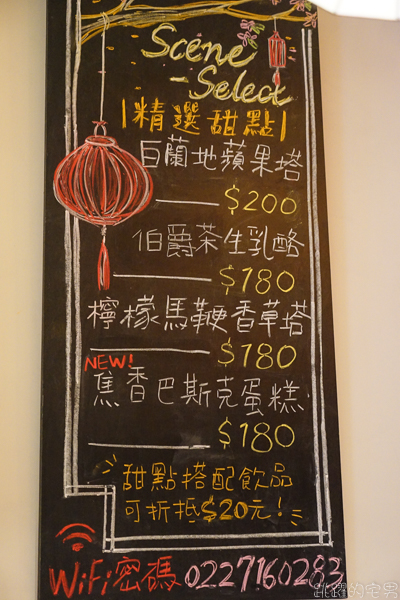 Scene
Select
精選甜點
白蘭地蘋果塔
$200
伯爵茶生乳酪
$180
檸檬馬鞭香草塔
$180
NEW!
焦香巴斯克蛋糕
$180
甜點搭配飲品
可折抵$20元!
WiFi密碼 0227160283